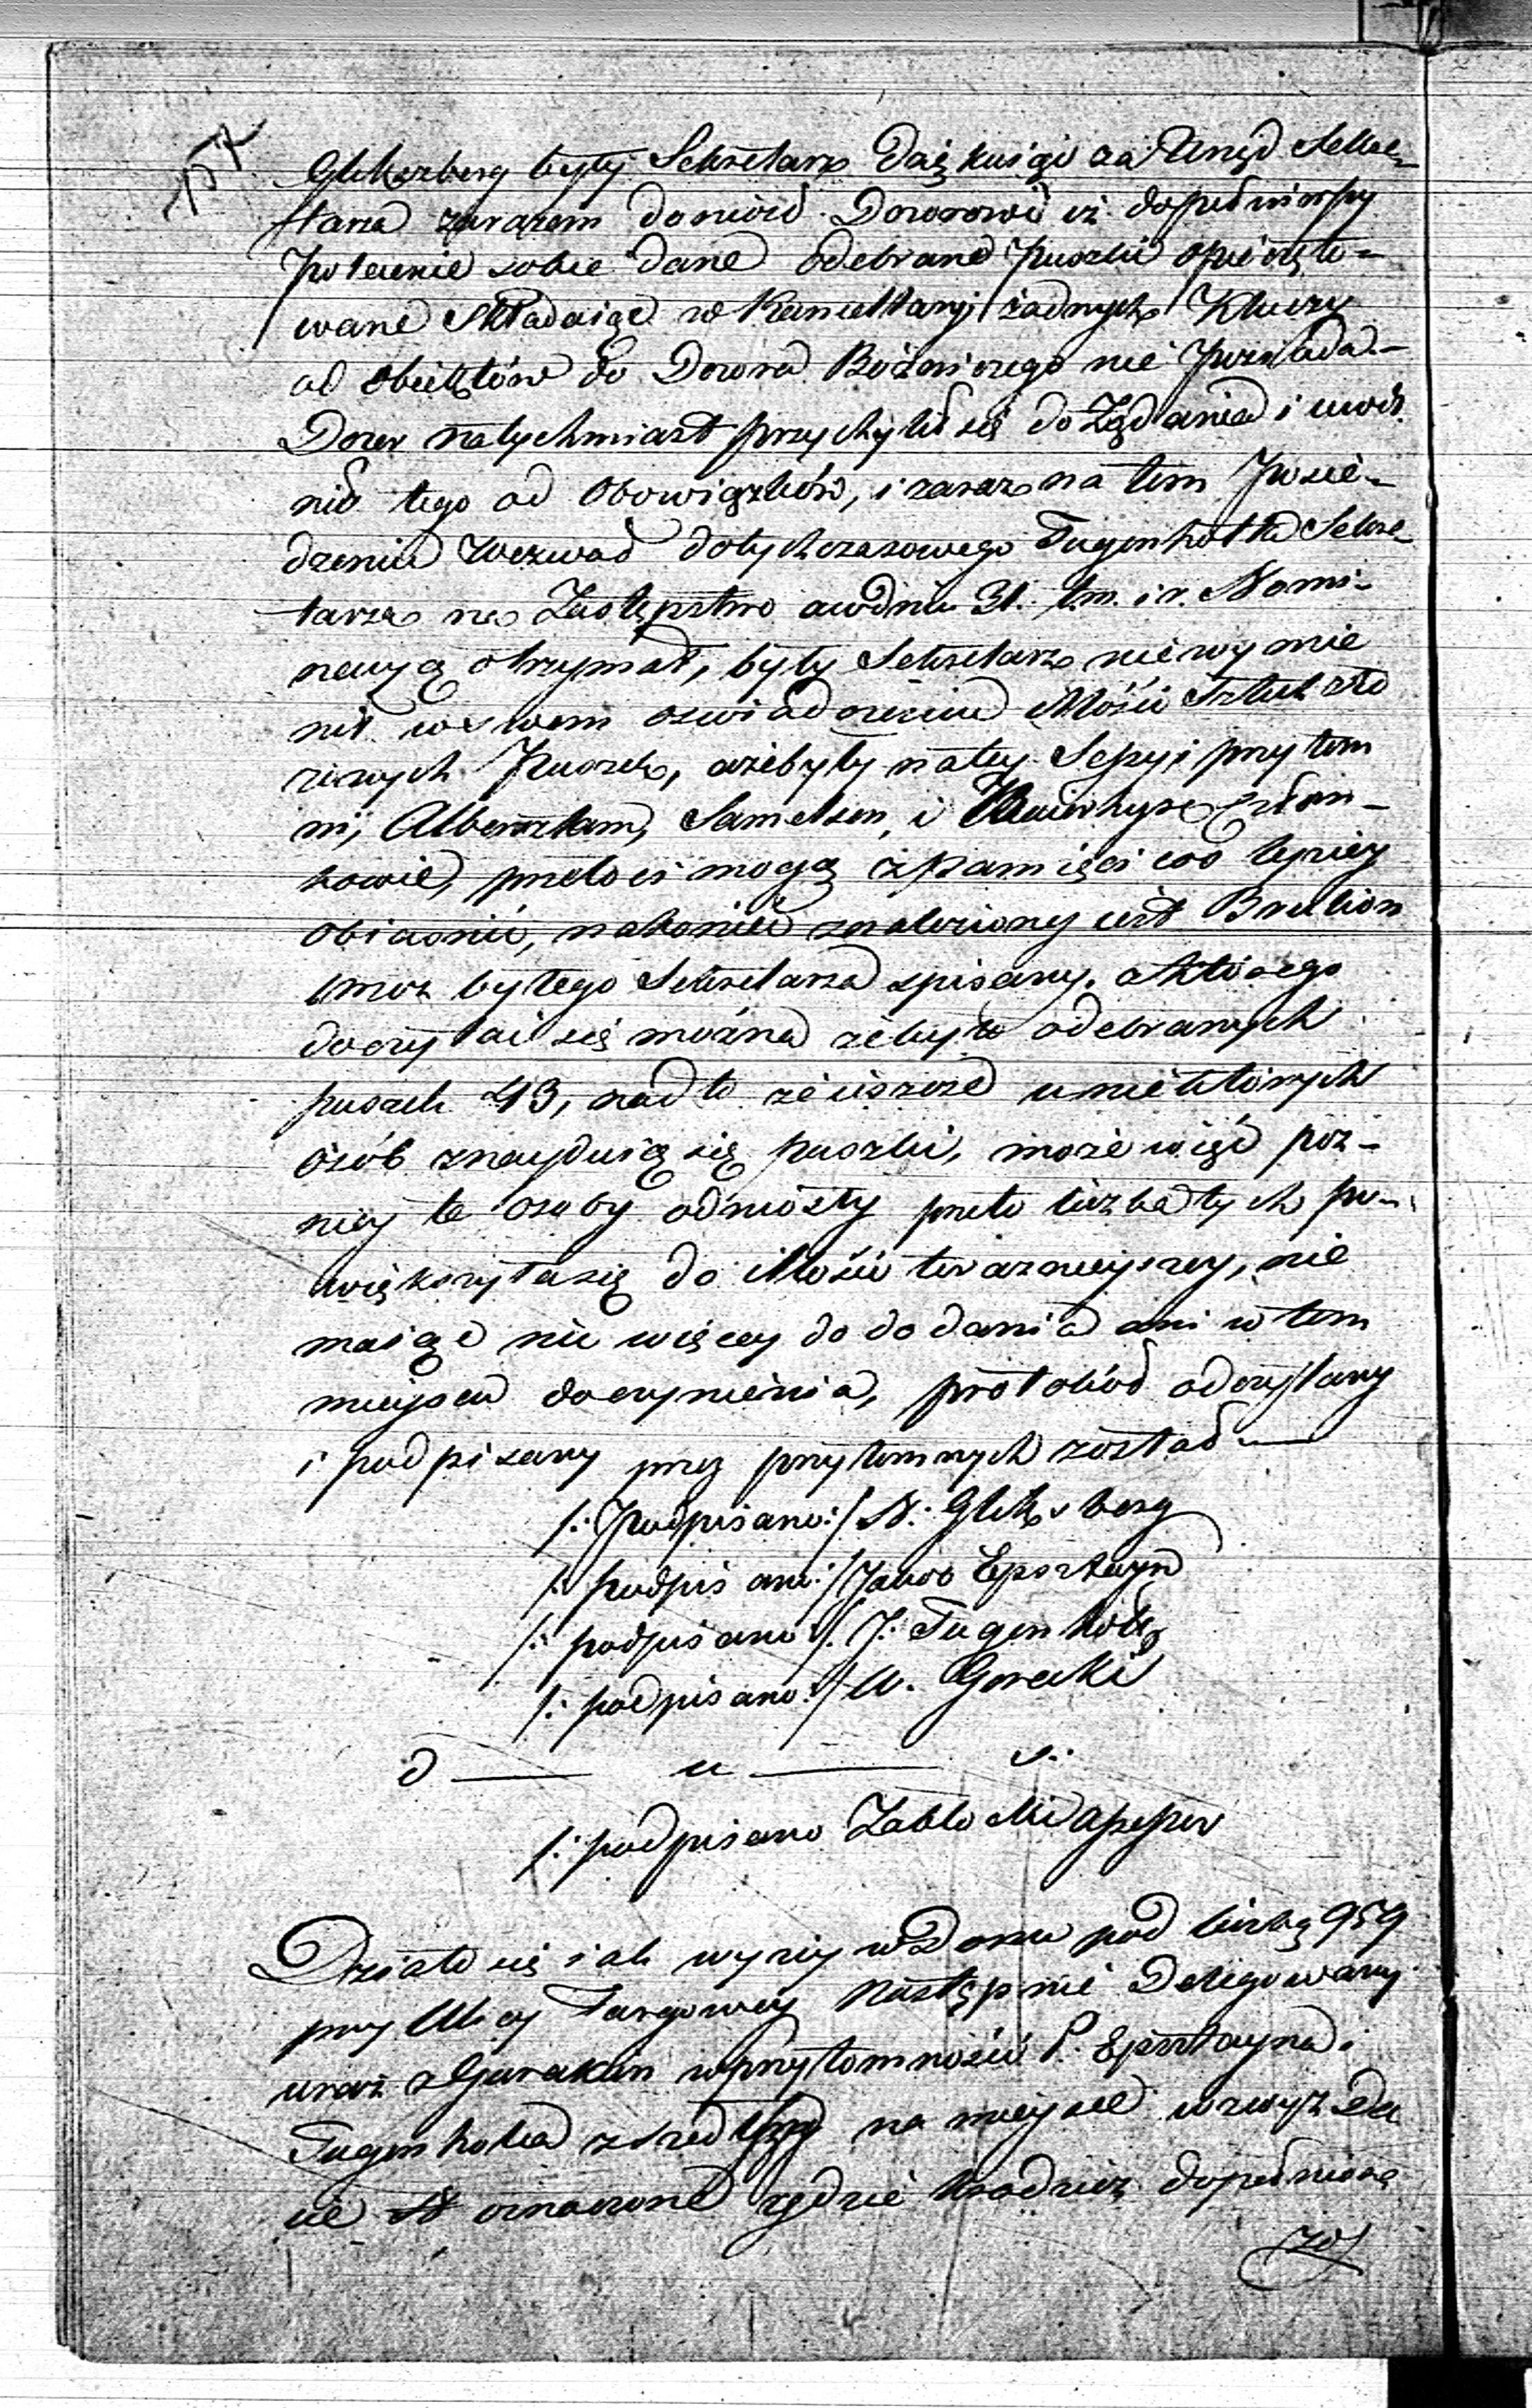 Gliksberg były Sekretarz Daiękuiąc za Urząd Sekre-
tarza zarazem doniósł Dozorowi iż dopełniaiący
polecenie sobie dane odebrane Puszki opieczęto-
wane składaiąc w Kancellaryi żadnych Kluczy
od obiektów do Dozoru Bóżniczego nie posiada.-
Dozor natychmiast przychylił się do Żądania i uwol
nił tego od Obowiązków, i zaraz na tem Posie-
dzeniu wezwał dotychczasowego Tugenholda Sekre
tarza na Zastępstwo a w dniu 31. t.m. i r. Nomi-
nacyą otrzymał, były Sekretarz niewymie
nił w swem oswiadczeniu Ilości Sztuk
Puszek, ażebyły na tey Sessyi przytom
ni, Samelson, i Człon-
kowie, przeto ci mogą z pamięci co lepiey
obiasnić, nakoniec znaleziony iest Brulion
przez byłego Sekretarza spisany, z którego
doczytać się można że było odebranych
puszek 43, nadto że ieszcze u niektórych
osób znayduią się puszki, może więc póz-
niey te osoby odniosły przeto liczba tych po-
większyła się do Ilości teraznieyszey, nie
maiąc nic więcey do dodania ani w tem
mieyscu do czynienia, protokół odczytany
i podpisany przez przytomnych został —
/: Podpisano :/ N. Gliksberg
/: podpisano :/ Jakob Epsztayn
/: podpisano :/ J. Tugenhold
/: podpisano :/ W. Gorecki
d — u — s.
/: podpisano
Działo się iak wyżey w Domu pod liczbą 959
przy Ulicy Targowey Następnie Delegowany
wraz z w przytomności P. Epsztayna i
Tugenholda zszedłszy na mieysce wzwyż Da
ie oznaczone gdzie kradzież dopełnioną
zos